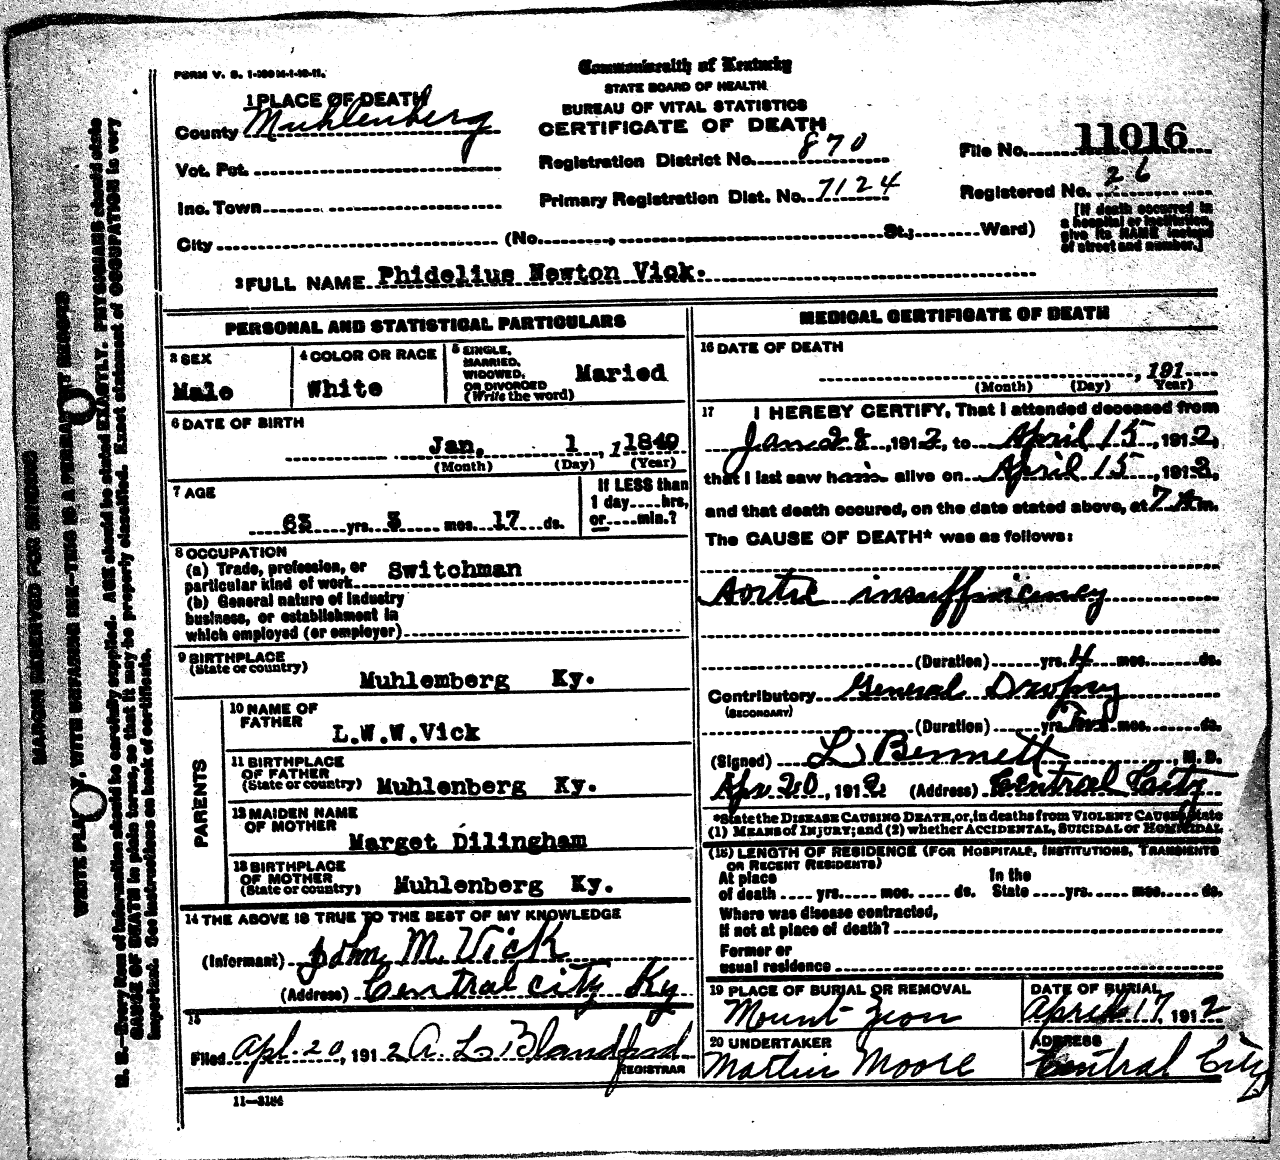 FORM V. S. 1-100M-1-10-11.
Commonwealth of Kentucky
STATE BOARD OF HEALTH
BUREAU OF VITAL STATISTICS
CERTIFICATE OF DEATH
1 PLACE OF DEATH
County Muhlenberg
Vot. Pct.
Inc. Town
City (No. , St.; Ward)
Registration District No. 870
Primary Registration Dist. No. 7124
File No. 11016
Registered No. 26
[If death occurred in
a hospital or institution,
give its NAME instead
of street and number.]
2 FULL NAME Phidelius Newton Vick.
PERSONAL AND STATISTICAL PARTICULARS
3 SEX
Male
4 COLOR OR RACE
White
5 SINGLE,
MARRIED,
WIDOWED,
OR DIVORCED
(Write the word)
Maried
6 DATE OF BIRTH
Jan. 1 , 1 1849
(Month) (Day) (Year)
7 AGE
63 yrs. 3 mos. 17 ds.
If LESS than
1 day....hrs,
or....min.?
8 OCCUPATION
(a) Trade, profession, or
particular kind of work Switchman
(b) General nature of industry
business, or establishment in
which employed (or employer)
9 BIRTHPLACE
(State or country)
Muhlemberg Ky.
PARENTS
10 NAME OF
FATHER
L.W.W.Vick
11 BIRTHPLACE
OF FATHER
(State or country) Muhlemberg Ky.
12 MAIDEN NAME
OF MOTHER
Marget Dilingham
13 BIRTHPLACE
OF MOTHER
(State or country) Muhlenberg Ky.
14 THE ABOVE IS TRUE TO THE BEST OF MY KNOWLEDGE
(Informant) John M. Vick
(Address) Central city Ky
15
Filed Apl. 20, 1912 A. L. Blandford
REGISTRAR
11—3184
MEDICAL CERTIFICATE OF DEATH
16 DATE OF DEATH
, 191
(Month) (Day) Year)
17 I HEREBY CERTIFY, That I attended deceased from
Jan 28, 1912, to April 15, 1912,
that I last saw him alive on April 15, 1912,
and that death occured, on the date stated above, at 7 A m.
The CAUSE OF DEATH* was as follows:
Aortic insufficiency
(Duration) yrs. 4 mos. ds.
Contributory General Dropsy
(SECONDARY)
(Duration) yrs. mos. ds.
(Signed) L Bennett, M. D.
Apr 20, 1912 (Address) Central City
*State the DISEASE CAUSING DEATH, or, in deaths from VIOLENT CAUSES state
(1) MEANS OF INJURY; and (2) whether ACCIDENTAL, SUICIDAL or HOMICIDAL
(18) LENGTH OF RESIDENCE (FOR HOSPITALS, INSTITUTIONS, TRANSIENTS
OR RECENT RESIDENTS)
At place In the
of death yrs. mos. ds. State yrs. mos. ds.
Where was disease contracted,
If not at place of death?
Former or
usual residence
19 PLACE OF BURIAL OR REMOVAL
Mount Zion
DATE OF BURIAL
April 17, 1912
20 UNDERTAKER
Moore
ADDRESS
Central City
MARGIN RESERVED FOR BINDING
WRITE PLAINLY, WITH UNFADING INK—THIS IS A PERMANENT RECORD
N. B.—Every item of information should be carefully supplied. AGE should be stated EXACTLY. PHYSICIANS should state
CAUSE OF DEATH in plain terms, so that it may be properly classified. Exact statement of OCCUPATION is very
important. See instructions on back of certificate.